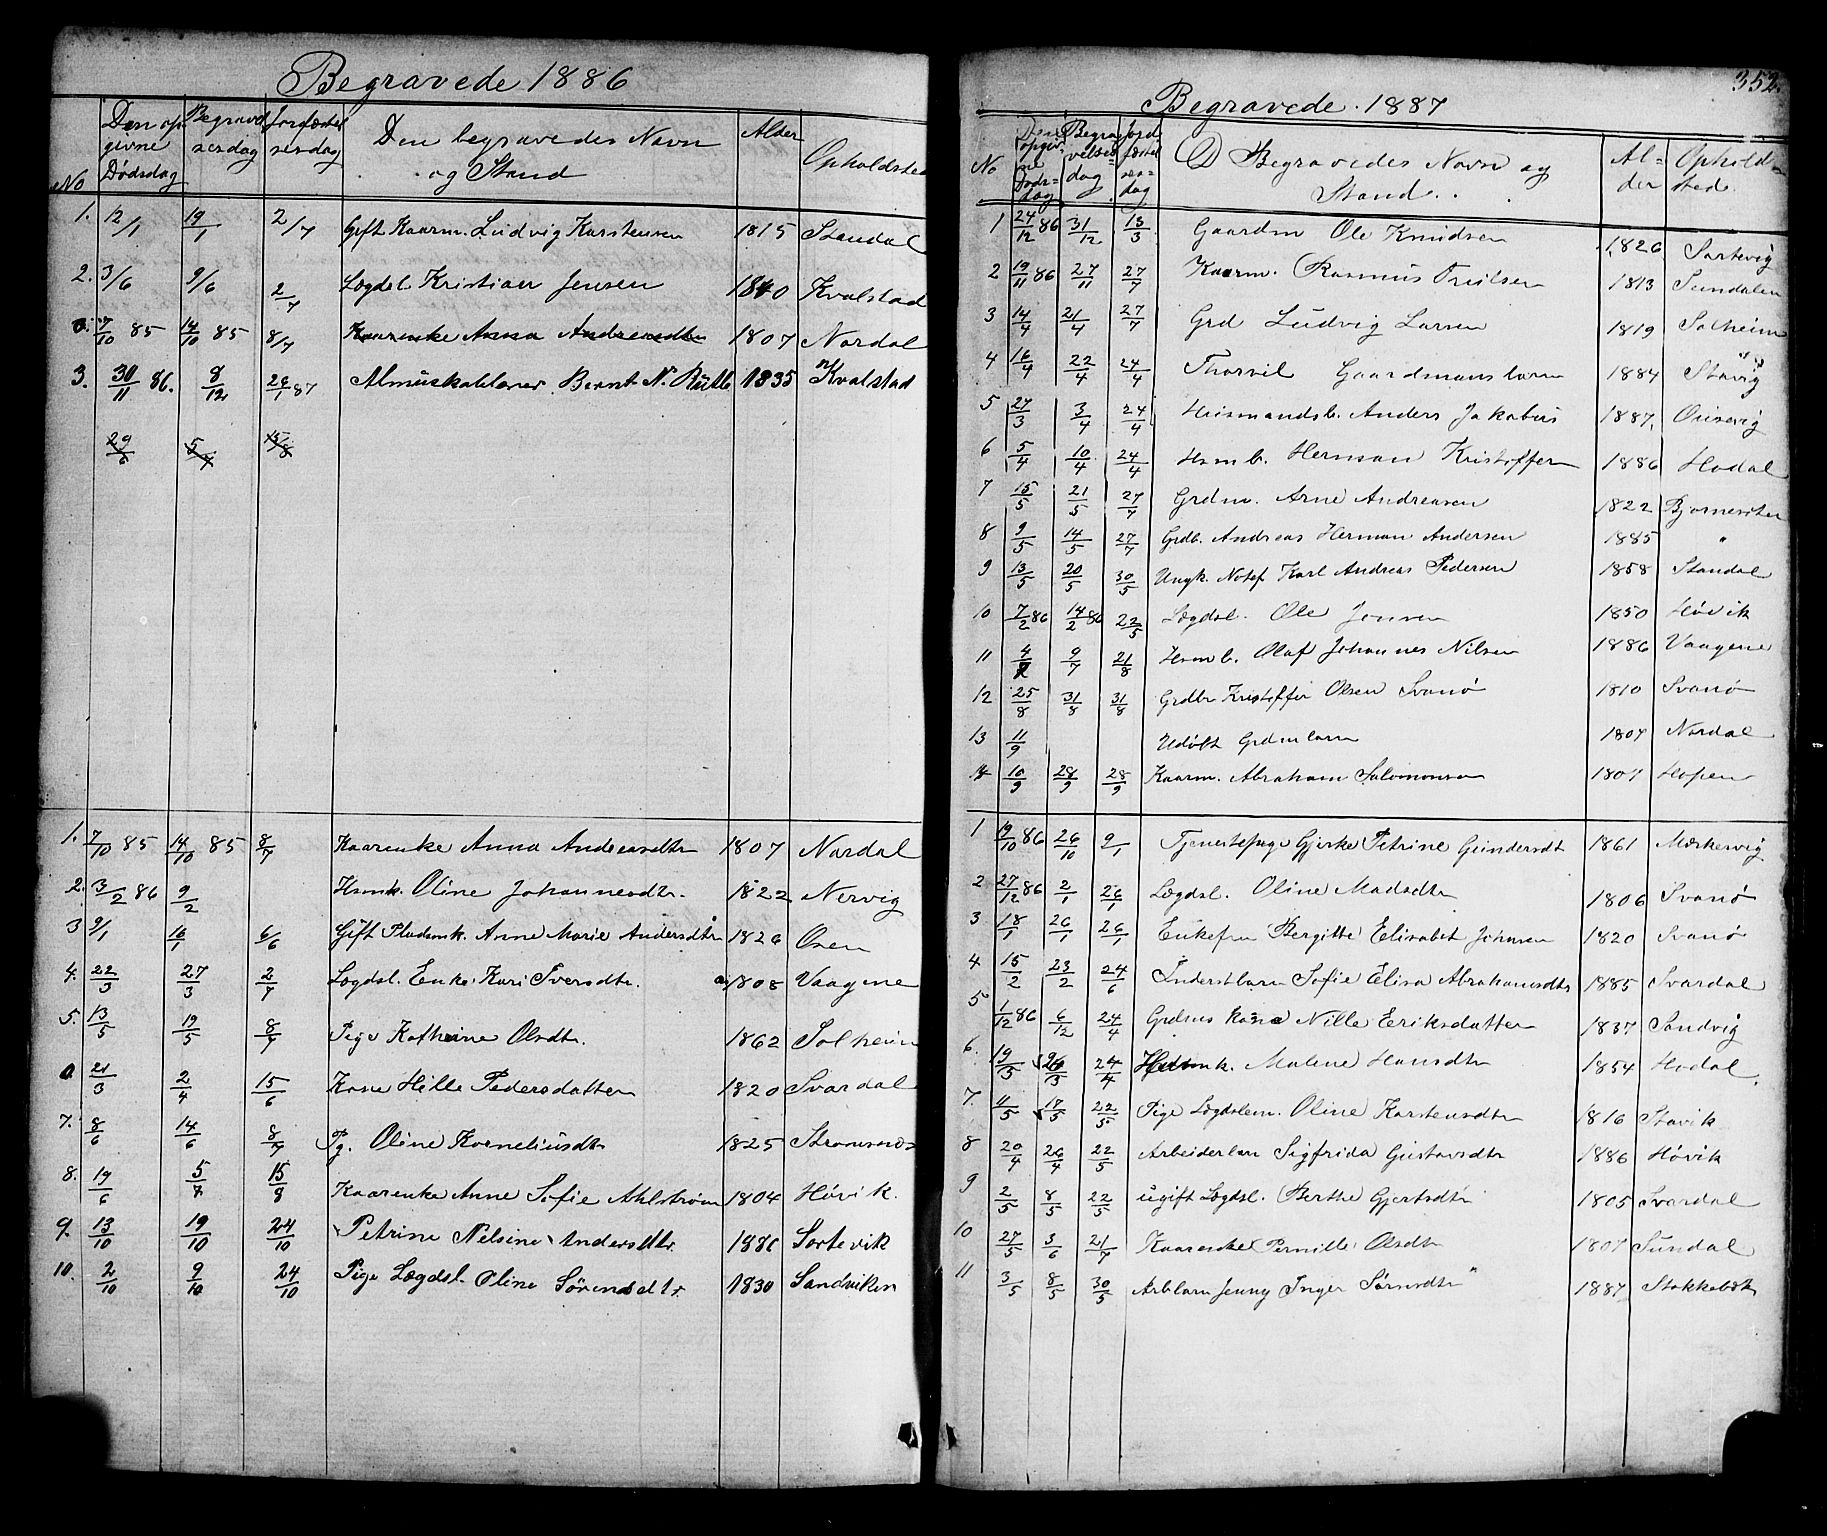 Begravede 1886
No Den opgivne Dødsdag Begravelsesdag Jordfæstelsesdag Den begravedes Navn og Stand Alder Opholdsted
1. 12/1 19/1 2/7 Gift Kaarm. Ludvig Karstensen 1815 Standal
2. 3/6 9/6 2/7 Lægdsl. Kristian Jensen 1840 Kvalstad
7/10 85 14/10 85 8/7 Kaarenke Anna Andreasdtr 1807 Nordal
3. 30/11 86. 8/12 26/1 87 Almuskoleärer Bernt N. 1835 Kvalstad
29/6 5/7 15/8
1. 7/10 85 14/10 85 8/7 Kaarenke Anna Andreasdtr 1807 Nordal
2. 3/2 86 9/2 Hsmk. Oline Johannesdtr. 1822 Nervig
3 9/1 16/1 6/6 Gift Pladsmk. Anne Marie Andersdtr 1826 Osen
4. 22/3 27/3 2/7 Lægdsl. Enke Kari Iversdtr. 1808 Vaagene
5. 13/5 19/5 8/7 Pige Kathrine Olsdtr. 1862 Solheim
6 21/3 2/4 15/6 Kone Hille Pedersdatter 1820 Svardal
7. 8/6 14/6 8/7 Pg. Oline Korneliusdtr 1825 Stromsnæs
8. 19/6 5/7 15/8 Kaarenke Anne Sofie Ahlstrøm 1804 Høvik.
9. 13/10 19/10 24/10 Petrine Nelsine Andersdtr. 1886 Sortevik
10. 2/10 9/10 24/10 Pige Lægdsl. Oline Sørensdtr. 1830 Sandviken
352.
Begravede. 1887
No Den opgivne Dødsdag Begravelsesdag Jordfæstelsesdag D Begravedes Navn og Stand. Alder Opholdsted.
1 24/12 86 31/12 13/3 Gaardm Ole Knudsen 1826 Sortevig
2 19/11 86 27/11 27/7 Kaarm. Rasmus Truilsen 1813 Sundalen
3 14/4 21/4 27/7 Grd Ludvig Larsen 1819 Solheim
4 16/4 22/4 24/4 Thorvil Gaardmansbarn 1884 Stavig
5 27/3 3/4 24/4 Husmandsb. Anders Jakobus 1887.
6 5/4 10/4 24/4 Hsmb. Herman Kristoffer 1886 Hodal
7 15/5 21/5 27/7 Grdm. Arne Andreasen 1822 Bjorneseter
8 9/5 14/5 27/7 Grdb. Andreas Herman Andersen 1885 "
9 13/5 20/5 30/5 Ungk. Notef Karl Andreas Pedersen 1858 Standal
10 7/2 86 14/2 86 22/5 Lægdsl. Ole Jensen 1850 Høvik
11 4/7 9/7 21/8 Hsmb. Olaf Johannes Nilsen 1886 Vaagene
12 25/8 31/8 31/8 Grdbr Kristoffer Olsen Svanø 1810 Svanø
13 11/9 Udøbt Grdmbarn 1807 Nordal
14 10/9 28/9 28/9 Kaarm. Abraham Salomonsen 1807 Hopen
1 19/10 86 26/10 9/1 Tjenestepige Gjerke Petrine Gundersdt 1861 Mærkesvig
2 27/12 86 2/1 26/1 Lægdsl. Oline Madsdtr 1806 Svanø
3 18/1 26/1 26/1 Enkefru Bergitte Elisabet Johnsen 1820 Svanø
4 15/2 23/2 24/6 Inderstbarn Sofie Elisa Abrahamsdtr 1885 Svardal
5 1/12 86 6/12 24/4 Grdms kone Nille Eeriksdatter 1837 Sandvig
6. 19/3 26/3 24/4 Hsmk. Malene Hansdtr 1854 Hodal.
7. 11/5 17/5 22/5 Pige Lægdslem. Oline Karstensdtr 1816 Stavik
8 20/4 26/4 22/5 Arbeiderbarn Sigfrida Gustavsdtr 1886 Høvik
9 2/5 8/5 22/5 ugift Lægdsl. Berthe Gjertsdtr 1805 Svardal
10 27/5 3/6 21/7 Kaarenke Pernille Olsdtr 1807 Sundal
11 3/5 8/5 30/5 Arbbarn Jenny Inger Sørnsdtr 1887 Stokkebøtn